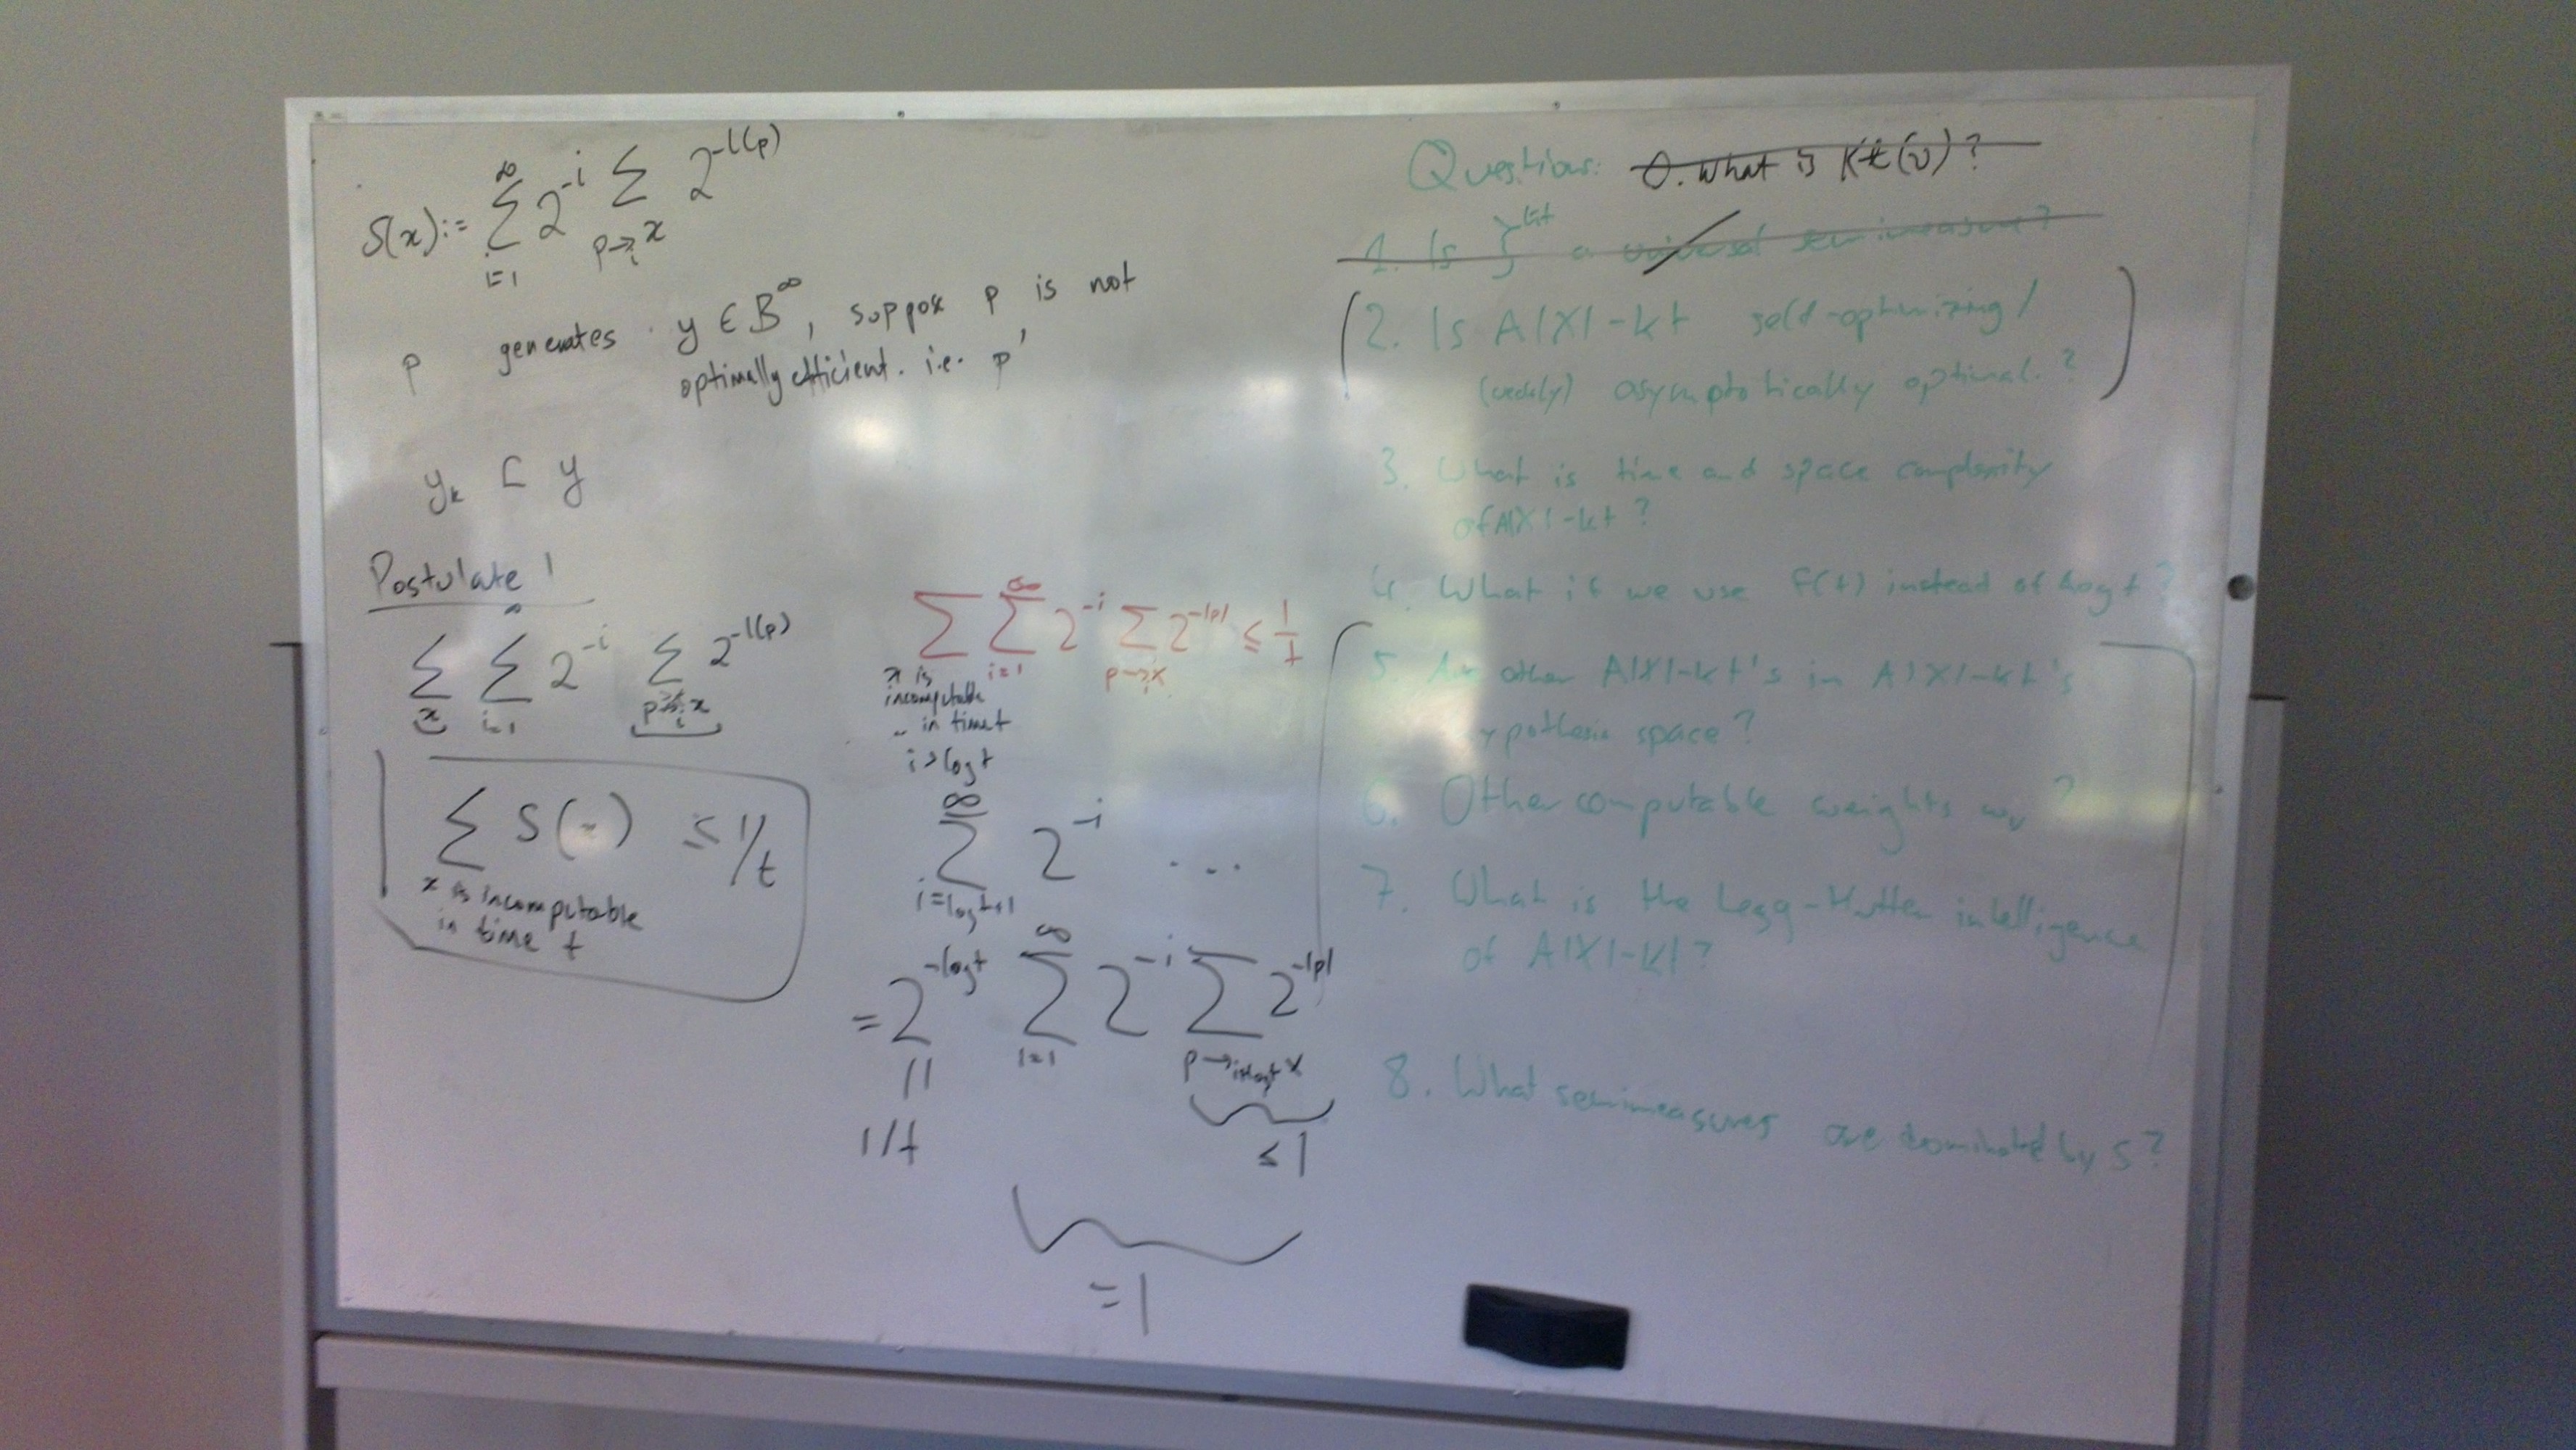 S(x) := ∞ Σ i=1 2^-i Σ p→_i x 2^-l(p)
p generates y ∈ B^∞, suppose p is not
optimally efficient. i.e. p'
y_k ⊏ y
Postulate 1
Σ x ∞ Σ i=1 2^-i Σ p→_i x 2^-l(p)
Σ S(x) ≤ 1/t
x is incomputable
in time t
Σ ∞ Σ i=1 2^-i Σ p→_i x 2^-|p| ≤ 1/t
x is
incomputable
in time t
i > log t
∞ Σ i=log t+1 2^-i ...
= 2^-log t ∞ Σ i=1 2^-i Σ p→_i+log t x 2^-|p|
||
1/t
≤ 1
= 1
Questions: 0. What is Kt(ν)?
1. Is ξ^kt a universal semimeasure?
(2. Is AIXI-kt self-optimizing/
(weakly) asymptotically optimal.?)
3. What is time and space complexity
of AIXI-kt?
4. What if we use f(t) instead of log t?
5. other AIXI-kt's in AIXI-kt's
ypothesis space?
6. Other computable weights w_ν?
7. What is the Legg-Hutter intelligence
of AIXI-kt?
8. What semimeasures are dominated by S?